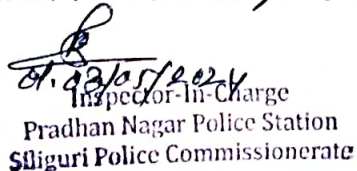 dt. 03/05/2024
Inspector-In-Charge
Pradhan Nagar Police Station
Siliguri Police Commissionerate